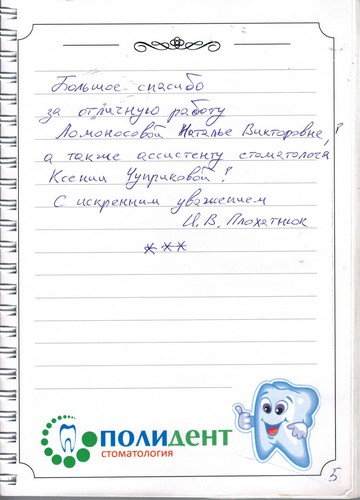 Большое спасибо
за отличную работу
Ломоносовой Наталье Викторовне,!
а также ассистенту стоматолога
Ксении Чуприковой!
С искренним уважением
И.В. Плохатнюк
***
ПОЛИДЕНТ
СТОМАТОЛОГИЯ
5